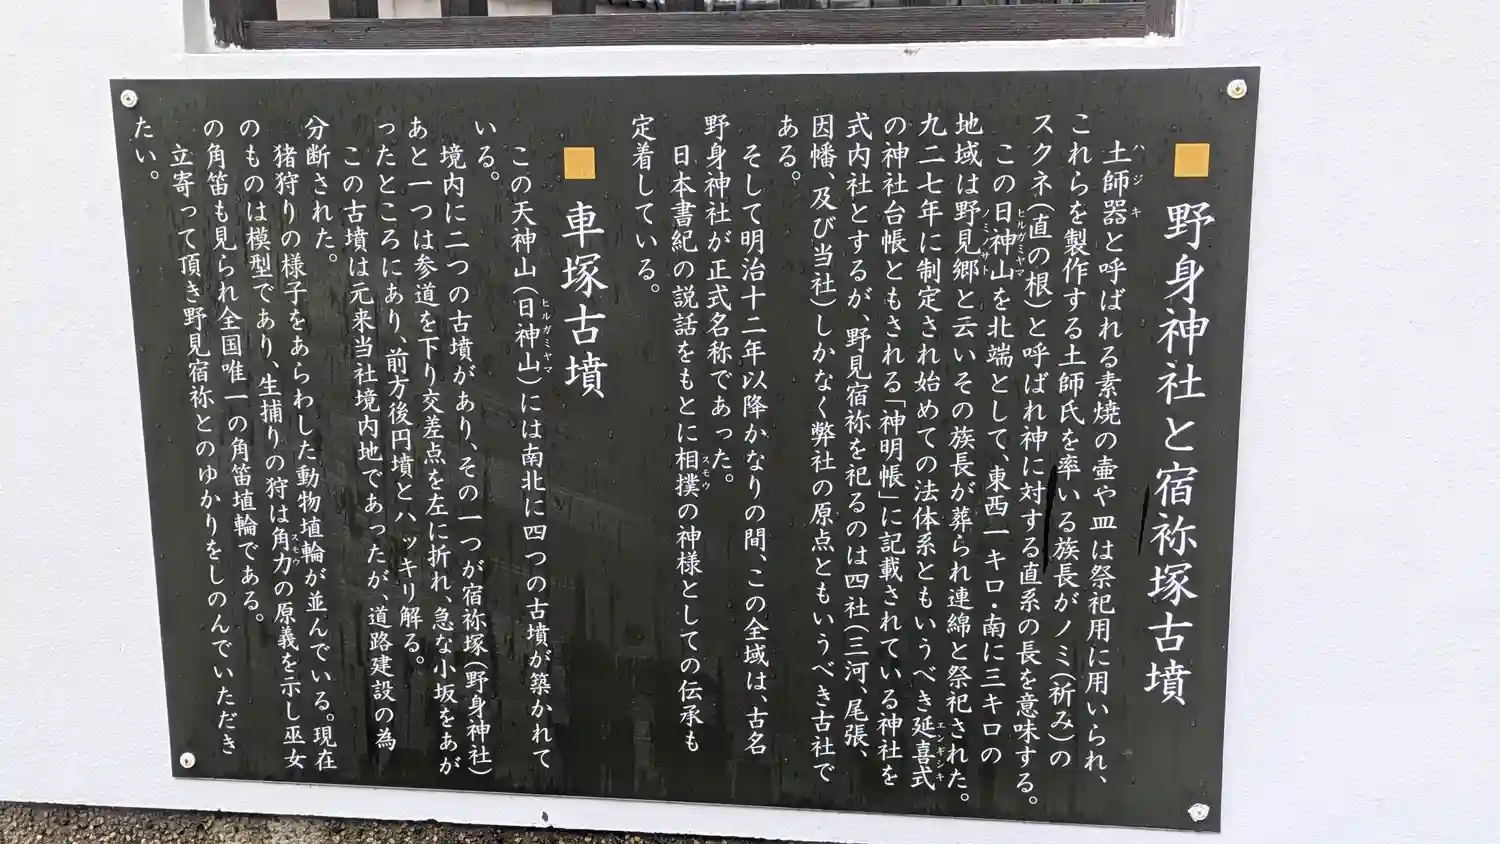 野身神社と宿祢塚古墳
土師器と呼ばれる素焼の壷や皿は祭祀用に用いられ、
これらを製作する土師氏を率いる族長がノミ(祈み)の
スクネ(直の根)と呼ばれ神に対する直系の長を意味する。
この日神山を北端として、東西一キロ・南に三キロの
地域は野見郷と云いその族長が葬られ連綿と祭祀された。
九二七年に制定され始めての法体系ともいうべき延喜式
の神社台帳ともされる「神明帳」に記載されている神社を
式内社とするが、野見宿祢を祀るのは四社(三河、尾張、
因幡、及び当社)しかなく弊社の原点ともいうべき古社で
ある。
そして明治十二年以降かなりの間、この全域は、古名
野身神社が正式名称であった。
日本書紀の説話をもとに相撲の神様としての伝承も
定着している。
車塚古墳
この天神山(日神山)には南北に四つの古墳が築かれて
いる。
境内に二つの古墳があり、その一つが宿祢塚(野身神社)
あと一つは参道を下り交差点を左に折れ、急な小坂をあが
ったところにあり、前方後円墳とハッキリ解る。
この古墳は元来当社境内地であったが、道路建設の為
分断された。
猪狩りの様子をあらわした動物埴輪が並んでいる。現在
のものは模型であり、生捕りの狩は角力の原義を示し巫女
の角笛も見られ全国唯一の角笛埴輪である。
立寄って頂き野見宿祢とのゆかりをしのんでいただき
たい。
ハジキ
ヒルガミヤマ
ノミノサト
エンギシキ
スモウ
ヒルガミヤマ
スモウ